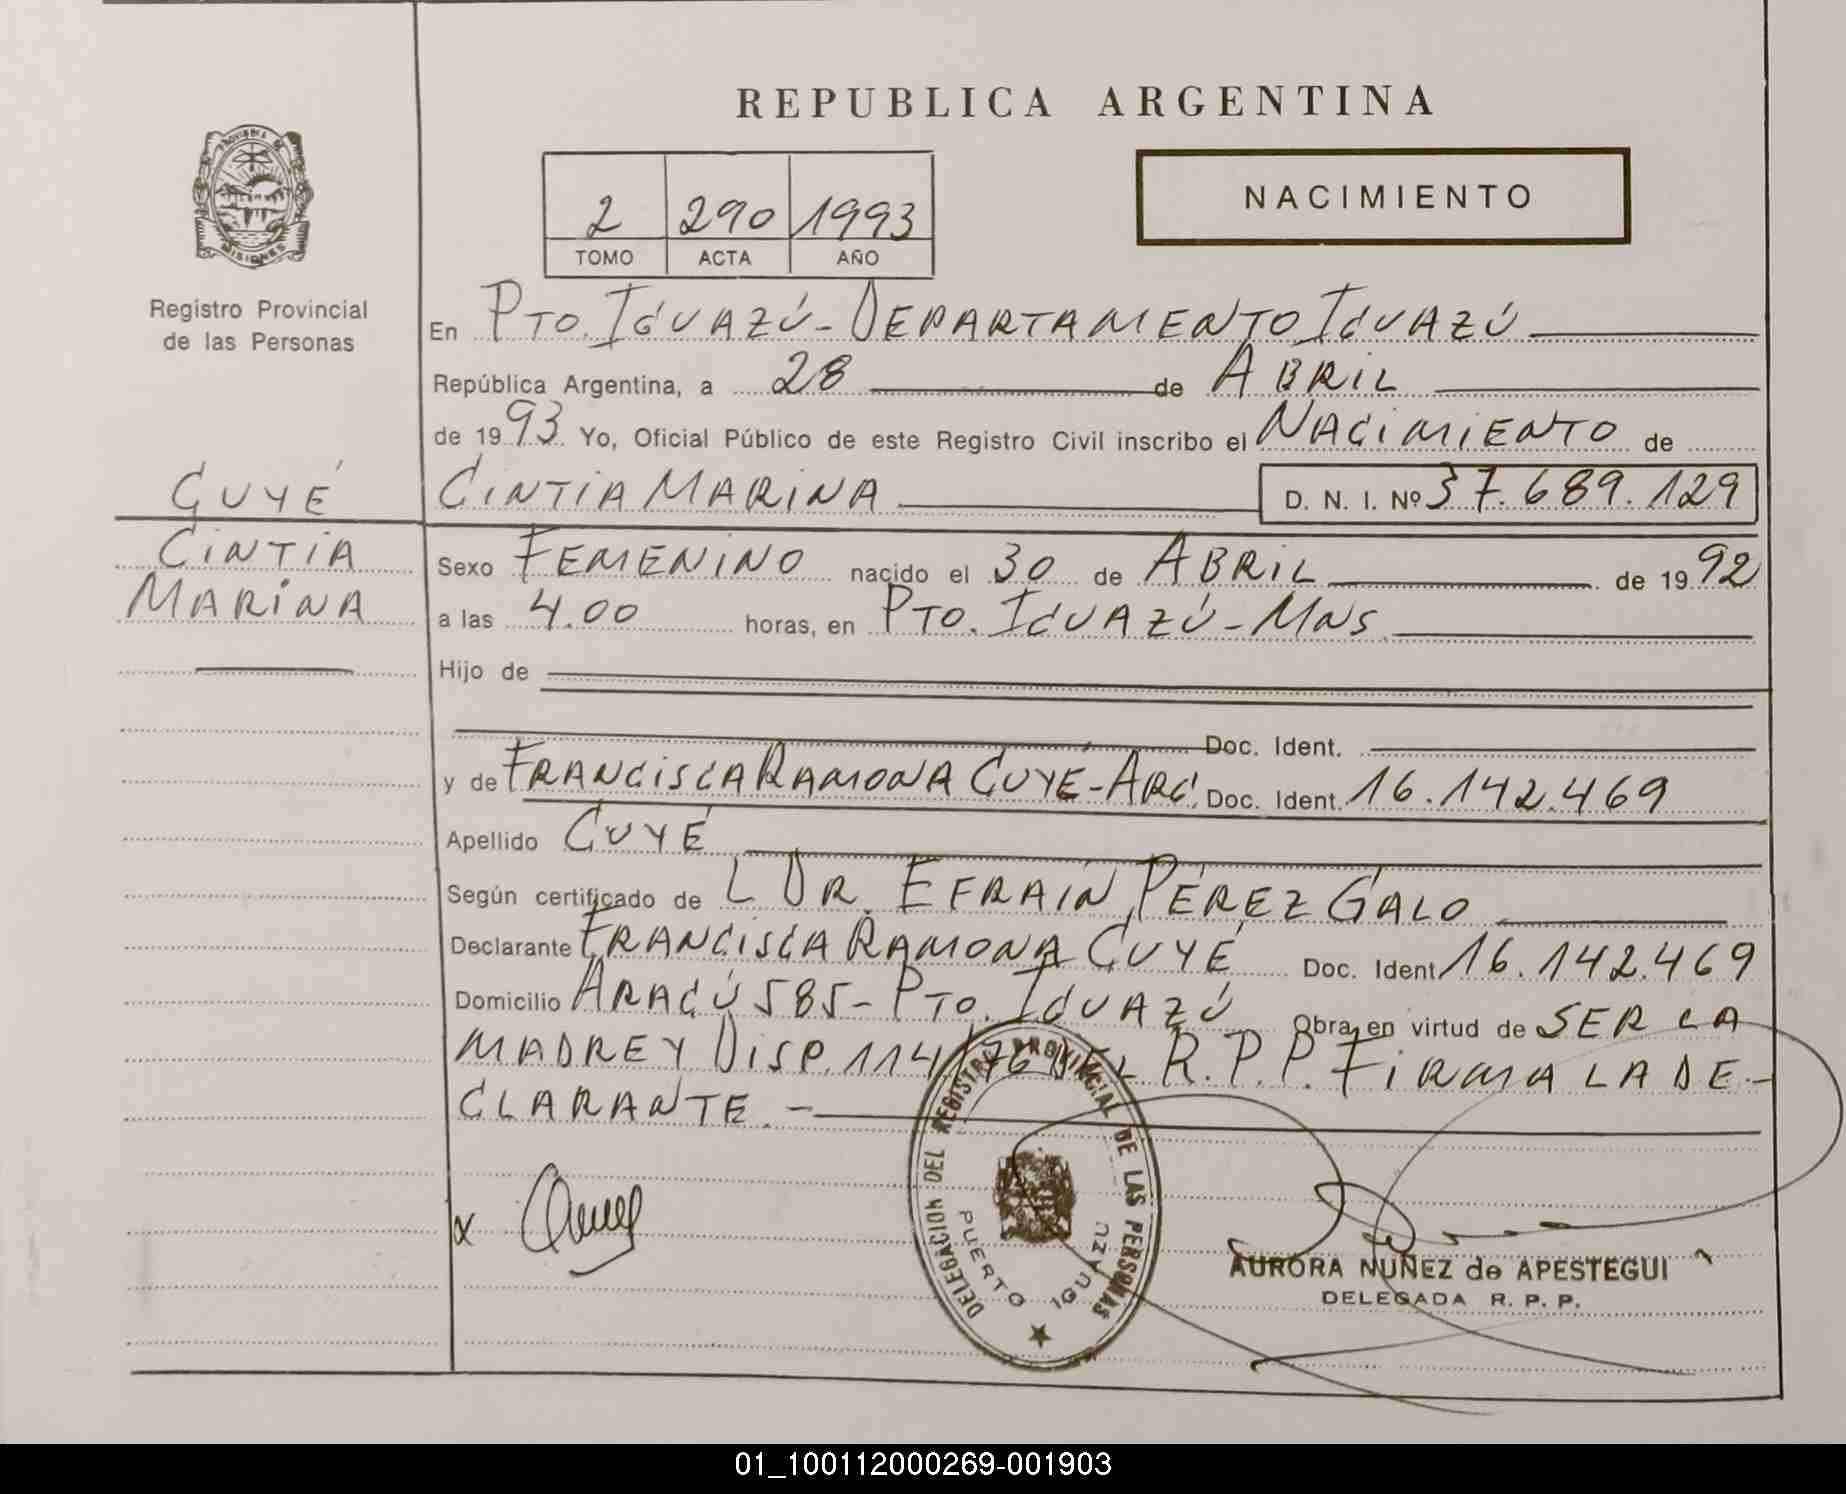 REPUBLICA ARGENTINA
NACIMIENTO
2 290 1993
TOMO ACTA AÑO
PROVINCIA DE
MISIONES
Registro Provincial
de las Personas
En PTO. IGUAZÚ - DEPARTAMENTO IGUAZÚ
República Argentina, a 28 de ABRIL
de 1993 Yo, Oficial Público de este Registro Civil inscribo el NACIMIENTO de
CINTIA MARINA D. N. I. Nº 37.689.129
GUYÉ
CINTIA
MARINA
Sexo FEMENINO nacido el 30 de ABRIL de 1992
a las 4.00 horas, en PTO. IGUAZÚ - MNS.
Hijo de
Doc. Ident.
y de FRANCISCA RAMONA GUYÉ - ARG. Doc. Ident. 16.142.469
Apellido GUYÉ
Según certificado de L DR. EFRAÍN PÉREZ GALO
Declarante FRANCISCA RAMONA GUYÉ Doc. Ident 16.142.469
Domicilio ARAGÚ 585 - PTO. IGUAZÚ Obra en virtud de SER LA
MADRE Y DISP. 114/76 DEL R.P.P. FIRMA LA DE-
CLARANTE.-
DELEGACION DEL REGISTRO PROVINCIAL DE LAS PERSONAS
PUERTO IGUAZU
AURORA NUÑEZ de APESTEGUI
DELEGADA R. P. P.
01_100112000269-001903